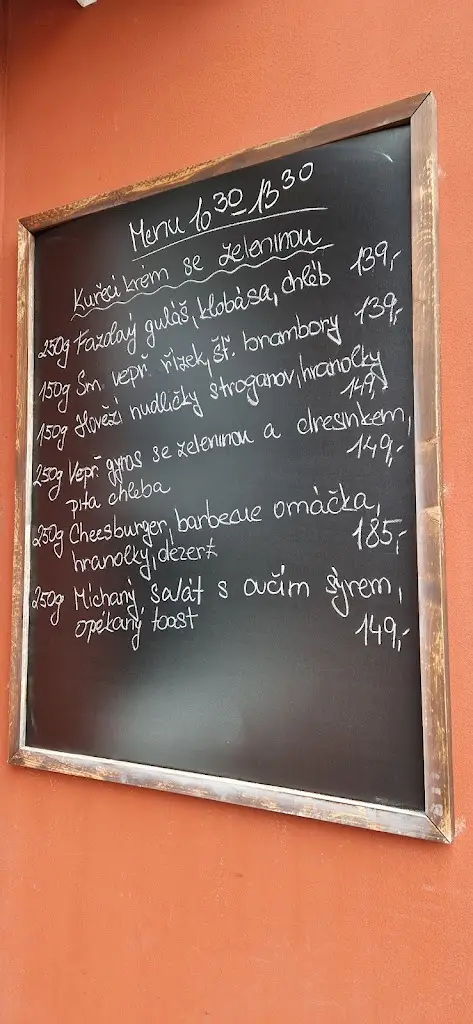 Menu 10³⁰ 13³⁰
Kuřecí krém se zeleninou
250g Fazolový guláš, klobása, chléb 139,-
150g Sm. vepř. řízek, šť. brambory 139,-
150g Hovězí nudličky stroganov, hranolky 149,-
250g Vepř. gyros se zeleninou a dresinkem, 149,-
pita chleba
250g Cheesburger, barbecue omáčka, 185,-
hranolky, dezert
250g Míchaný salát s ovčím sýrem,
opékaný toast 149,-